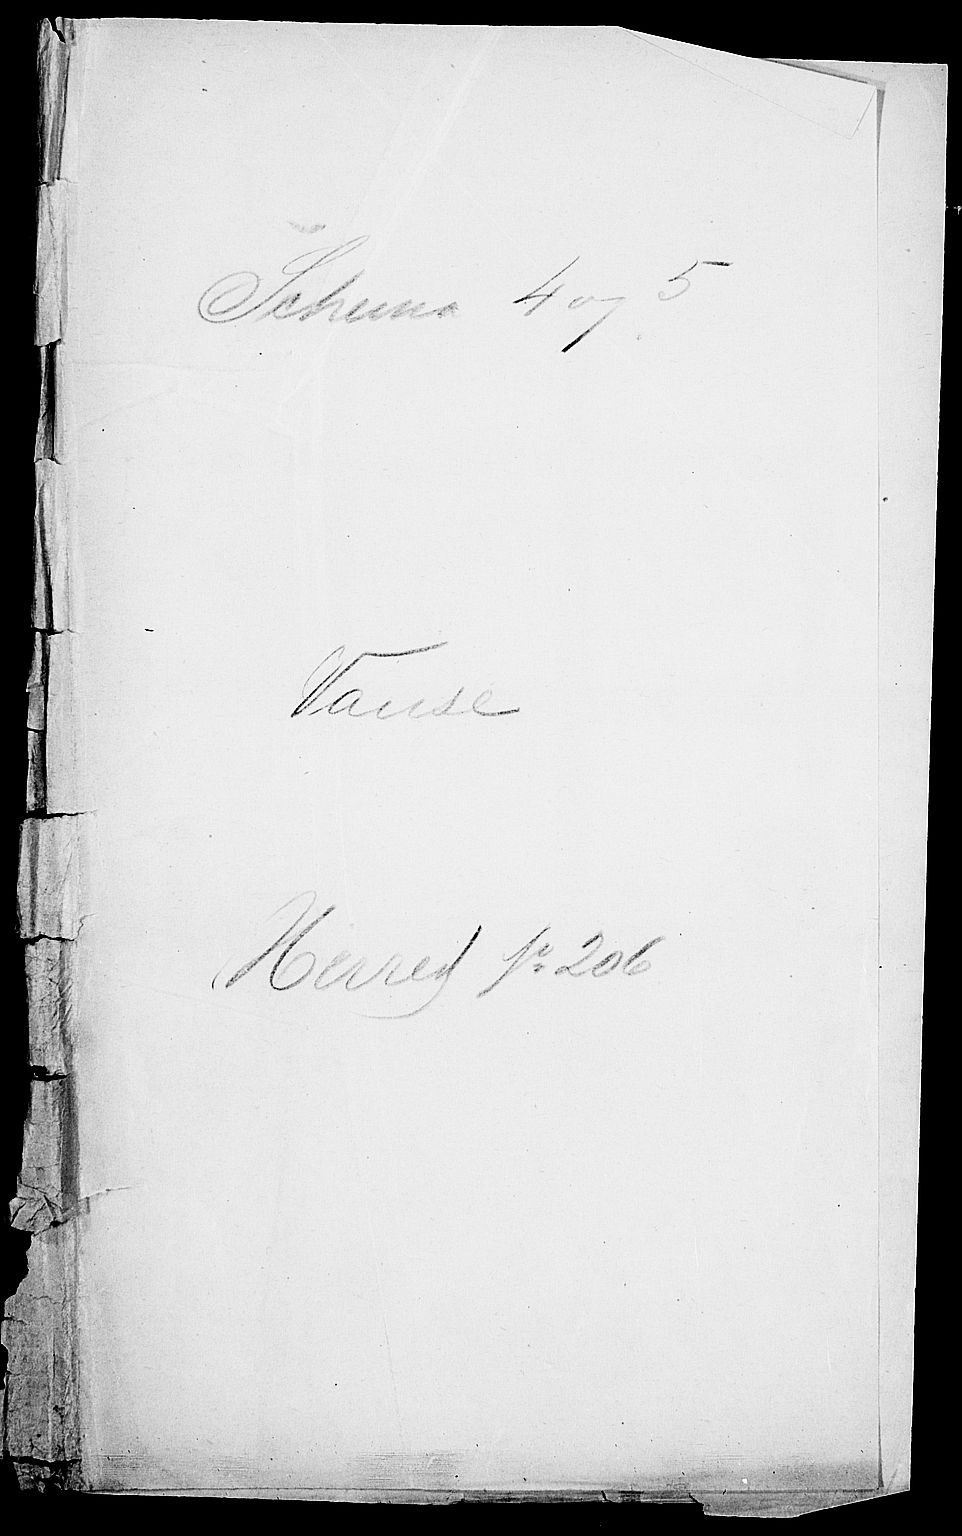 Schema 4 og 5
Vanse
Herred No 206